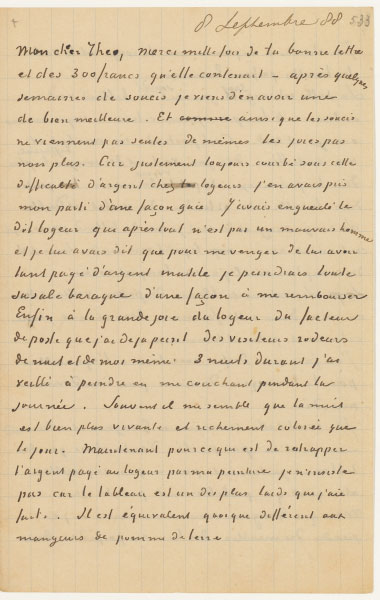 8 Septembre 88 533
Mon cher Theo, merci mille fois de ta bonne lettre
et des 300 francs qu'elle contenait – après quelques
semaines de soucis je viens d'en avoir une
de bien meilleure. Et comme ainsi que les soucis
ne viennent pas seules de mêmes les joies pas
non plus. Car justement toujours courbé sous cette
difficulté d'argent chez les logeurs j'en avais pris
mon parti d'une façon gaie. J'avais engueulé le
dit logeur qui après tout n'est pas un mauvais homme
et je lui avais dit que pour me venger de lui avoir
tant payé d'argent inutile je peindrais toute
sa sale baraque d'une façon à me rembourser
Enfin à la grande joie du logeur du facteur
de poste que j'ai deja peint des visiteurs rodeurs
de nuit et de moi même. 3 nuits durant j'ai
veillé à peindre en me couchant pendant la
journée. Souvent il me semble que la nuit
est bien plus vivante et richement colorée que
le jour. Maintenant pour ce qui est de ratrapper
l'argent payé au logeur par ma peinture je n'insiste
pas car le tableau est un des plus laids que j'aie
faits. Il est équivalent quoique différent aux
mangeurs de pommes de terre